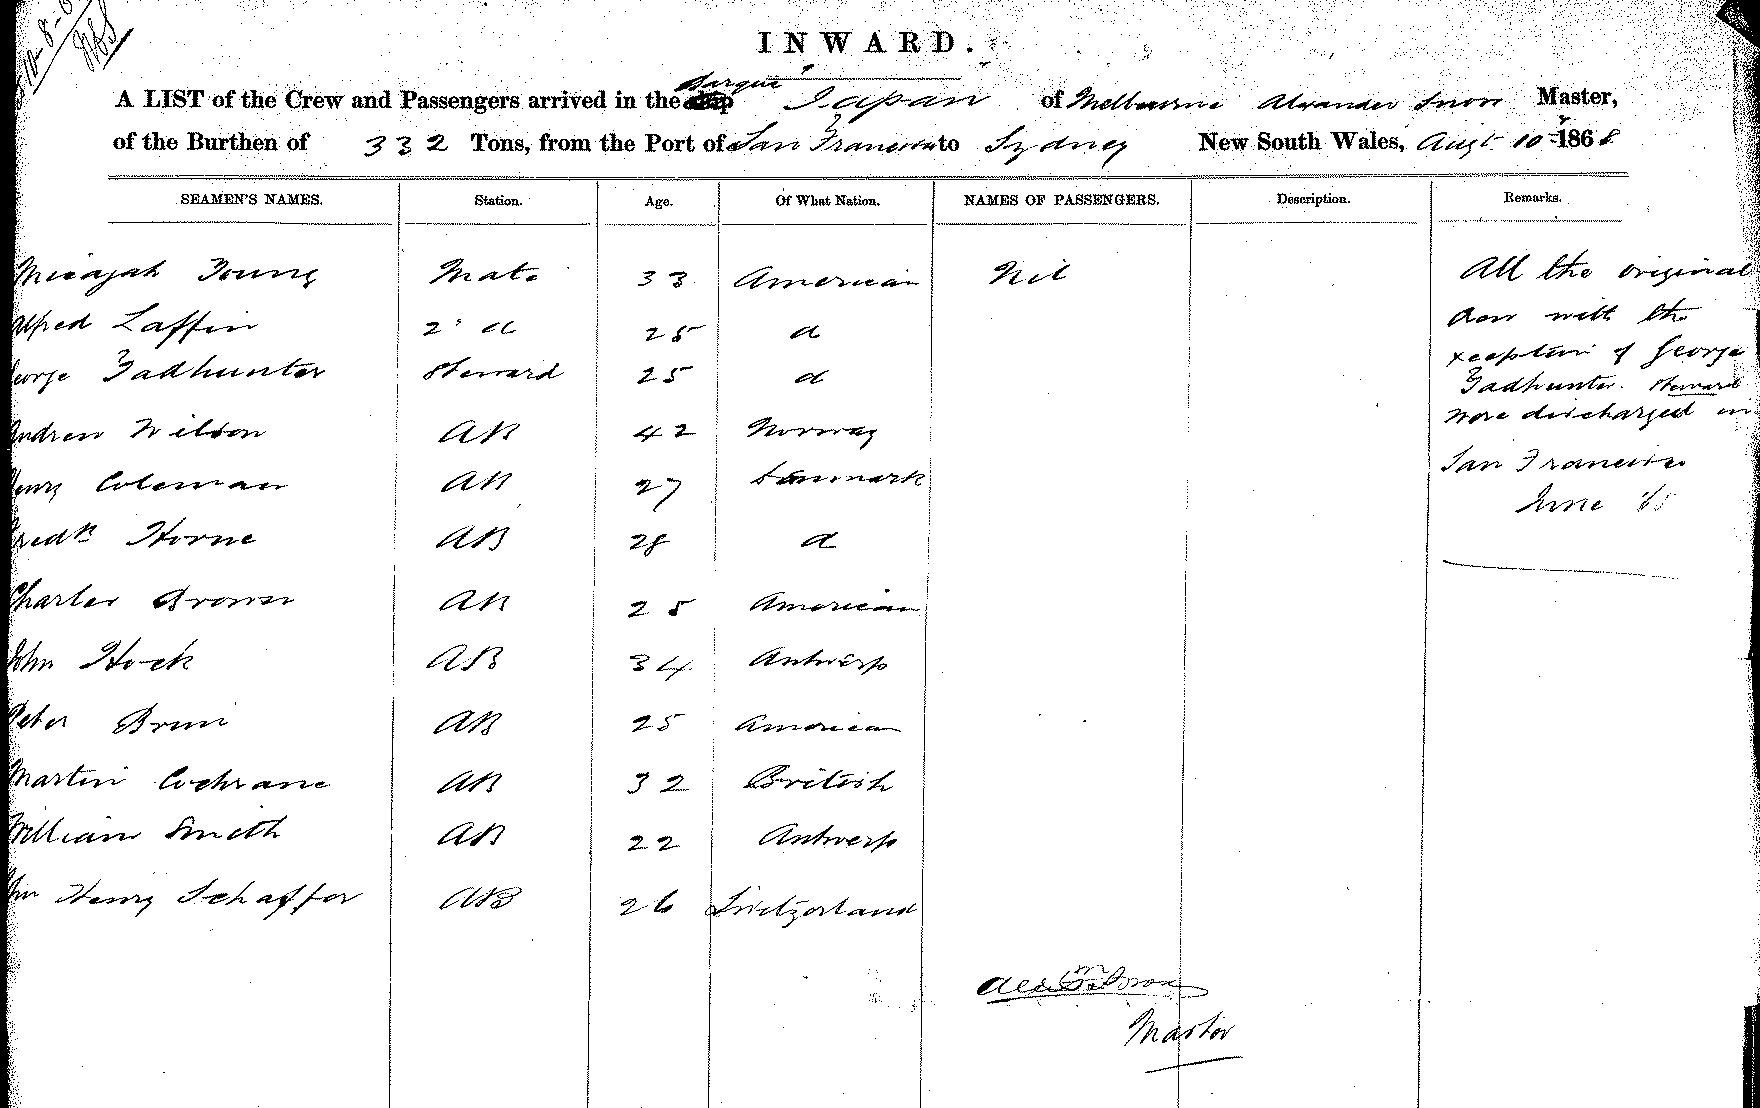 INWARD.
A LIST of the Crew and Passengers arrived in the Barque Japan of Melbourne Alexander Master,
of the Burthen of 332 Tons, from the Port of San Francisco to Sydney New South Wales, Augt 10th 1868
SEAMEN'S NAMES. Station. Age. Of What Nation. NAMES OF PASSENGERS. Description. Remarks.
Micajah Young Mate 33 American Nil All the original
Alfred Laffin 2d 25 d Crew with the
George Tadhunter Steward 25 d xception of George
Tadhunter. Steward
Andrew Wilson AB 42 Norway were discharged in
Henry Coleman AB 27 Denmark San Francisco
June
Fredk Horne AB 28 d
Charles Brown AB 25 American
John Hock AB 34 Antwerp
Peter Brun AB 25 American
Martin Cochrane AB 32 British
William Smith AB 22 Antwerp
Henry Schaffer AB 26 Switzerland
Master